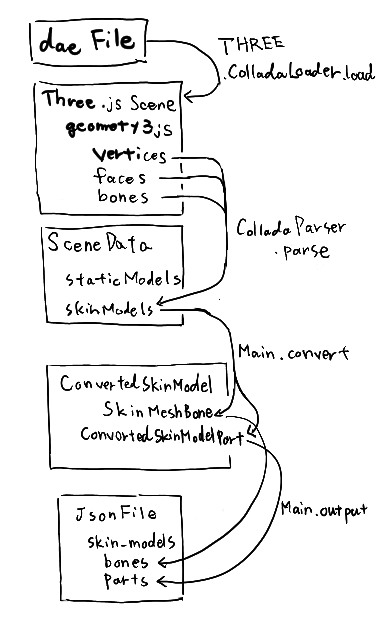 dae File
THREE
.ColladaLoader.load
Three.js Scene
geometry3js
vertices
faces
bones
SceneData
staticModels
skinModels
ColladaParser
.parse
Main.convert
ConvertedSkinModel
SkinMeshBone
ConvertedSkinModelPart
Main.output
JsonFile
skin_models
bones
parts